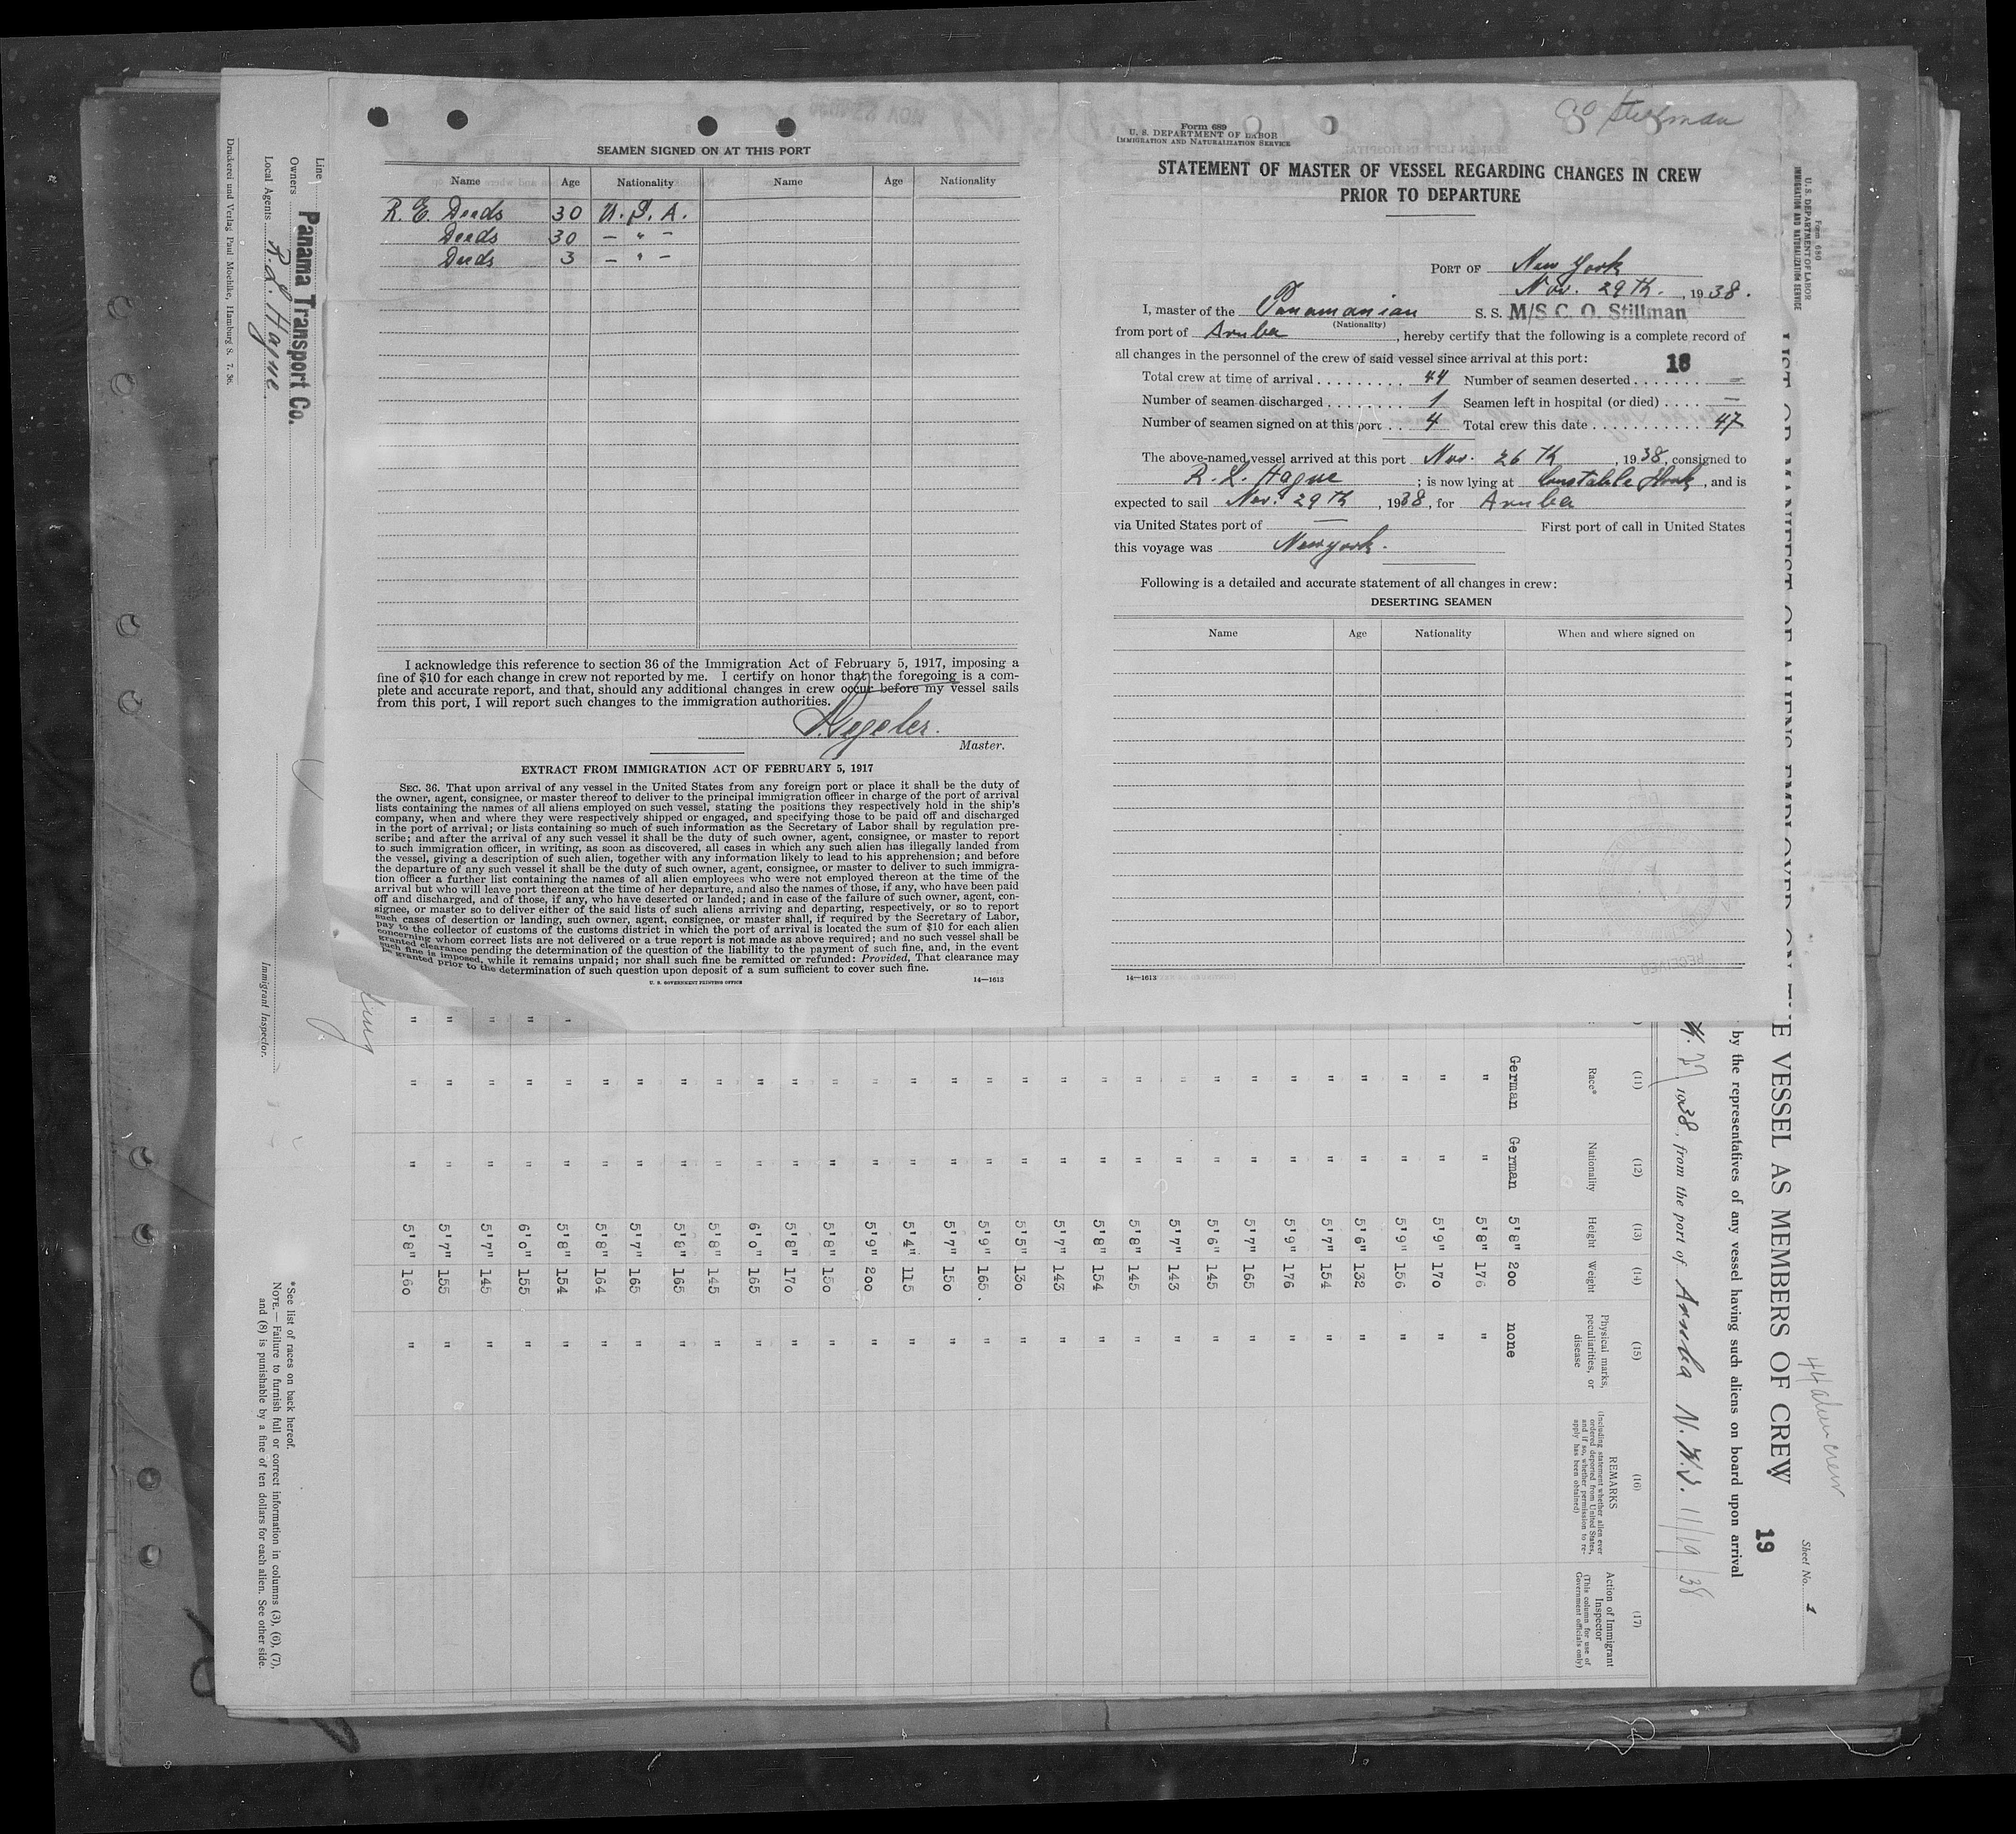 SEAMEN SIGNED ON AT THIS PORT
Name Age Nationality Name Age Nationality
R. E. Deeds 30 U. S. A.
Deeds 30 — " —
Deeds 3 — " —
I acknowledge this reference to section 36 of the Immigration Act of February 5, 1917, imposing a
fine of $10 for each change in crew not reported by me. I certify on honor that the foregoing is a com-
plete and accurate report, and that, should any additional changes in crew occur before my vessel sails
from this port, I will report such changes to the immigration authorities.
Master.
EXTRACT FROM IMMIGRATION ACT OF FEBRUARY 5, 1917
SEC. 36. That upon arrival of any vessel in the United States from any foreign port or place it shall be the duty of
the owner, agent, consignee, or master thereof to deliver to the principal immigration officer in charge of the port of arrival
lists containing the names of all aliens employed on such vessel, stating the positions they respectively hold in the ship's
company, when and where they were respectively shipped or engaged, and specifying those to be paid off and discharged
in the port of arrival; or lists containing so much of such information as the Secretary of Labor shall by regulation pre-
scribe; and after the arrival of any such vessel it shall be the duty of such owner, agent, consignee, or master to report
to such immigration officer, in writing, as soon as discovered, all cases in which any such alien has illegally landed from
the vessel, giving a description of such alien, together with any information likely to lead to his apprehension; and before
the departure of any such vessel it shall be the duty of such owner, agent, consignee, or master to deliver to such immigra-
tion officer a further list containing the names of all alien employees who were not employed thereon at the time of the
arrival but who will leave port thereon at the time of her departure, and also the names of those, if any, who have been paid
off and discharged, and of those, if any, who have deserted or landed; and in case of the failure of such owner, agent, con-
signee, or master so to deliver either of the said lists of such aliens arriving and departing, respectively, or so to report
such cases of desertion or landing, such owner, agent, consignee, or master shall, if required by the Secretary of Labor,
pay to the collector of customs of the customs district in which the port of arrival is located the sum of $10 for each alien
concerning whom correct lists are not delivered or a true report is not made as above required; and no such vessel shall be
granted clearance pending the determination of the question of the liability to the payment of such fine, and, in the event
such fine is imposed, while it remains unpaid; nor shall such fine be remitted or refunded: Provided, That clearance may
be granted prior to the determination of such question upon deposit of a sum sufficient to cover such fine.
U. S. GOVERNMENT PRINTING OFFICE 14—1613
Stillman
Form 689
U. S. DEPARTMENT OF LABOR
IMMIGRATION AND NATURALIZATION SERVICE
STATEMENT OF MASTER OF VESSEL REGARDING CHANGES IN CREW
PRIOR TO DEPARTURE
PORT OF New York
Nov. 29 Th., 1938.
I, master of the Panamanian S. S. M/S C. O. Stillman
(Nationality)
from port of Aruba, hereby certify that the following is a complete record of
all changes in the personnel of the crew of said vessel since arrival at this port:
18
Total crew at time of arrival 44 Number of seamen deserted —
Number of seamen discharged 1 Seamen left in hospital (or died) —
Number of seamen signed on at this port 4 Total crew this date 47
The above-named vessel arrived at this port Nov. 26 Th, 1938, consigned to
R. L. Hague; is now lying at Constable Hook, and is
expected to sail Nov. 29 Th, 1938, for Aruba
via United States port of — First port of call in United States
this voyage was Newyork.
Following is a detailed and accurate statement of all changes in crew:
DESERTING SEAMEN
Name Age Nationality When and where signed on
14—1613
Form 680
U. S. DEPARTMENT OF LABOR
IMMIGRATION AND NATURALIZATION SERVICE
Sheet No. 1
44 alien crew
LIST OR MANIFEST OF ALIENS EMPLOYED ON THE VESSEL AS MEMBERS OF CREW
19
by the representatives of any vessel having such aliens on board upon arrival
1938, from the port of Aruba N.W.I. 11/19/38
(11) (12) (13) (14) (15) (16) (17)
Race* Nationality Height Weight Physical marks, peculiarities, or disease
REMARKS
(Including statement whether alien ever ordered deported from United States, and if so, whether permission to re-apply has been obtained)
Action of Immigrant Inspector
(This column for use of Government officials only)
German German 5'8" 200 none
" " 5'8" 176 "
" " 5'9" 170 "
" " 5'9" 156 "
" " 5'6" 132 "
" " 5'7" 154 "
" " 5'9" 176 "
" " 5'7" 165 "
" " 5'6" 145 "
" " 5'7" 143 "
" " 5'8" 145 "
" " 5'8" 154 "
" " 5'7" 143 "
" " 5'5" 130 "
" " 5'9" 165. "
" " 5'7" 150 "
" " 5'4" 115 "
" " 5'9" 200 "
" " 5'8" 150 "
" " 5'8" 170 "
" " 6'0" 165 "
" " 5'8" 145 "
" " 5'8" 165 "
" " 5'7" 165 "
" " 5'8" 164 "
" " 5'8" 154 "
" " 6'0" 155 "
" " 5'7" 145 "
" " 5'7" 155 "
" " 5'8" 160 "
Line
Owners Panama Transport Co.
Local Agents R. L. Hague
Immigrant Inspector.
*See list of races on back hereof.
NOTE.—Failure to furnish full or correct information in columns (3), (6), (7),
and (8) is punishable by a fine of ten dollars for each alien. See other side.
Druckerei und Verlag Paul Moehlke, Hamburg 8. 7. 36.